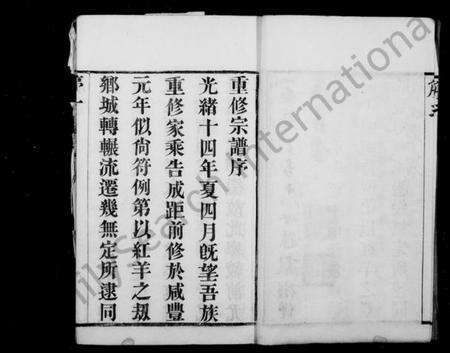 重修宗譜序
光緒十四年夏四月既望吾族
重修家乘告成距前修於咸豐
元年似尚符例第以紅羊之刼
鄉城轉輾流遷幾無定所逮同
序一
FamilySearch International